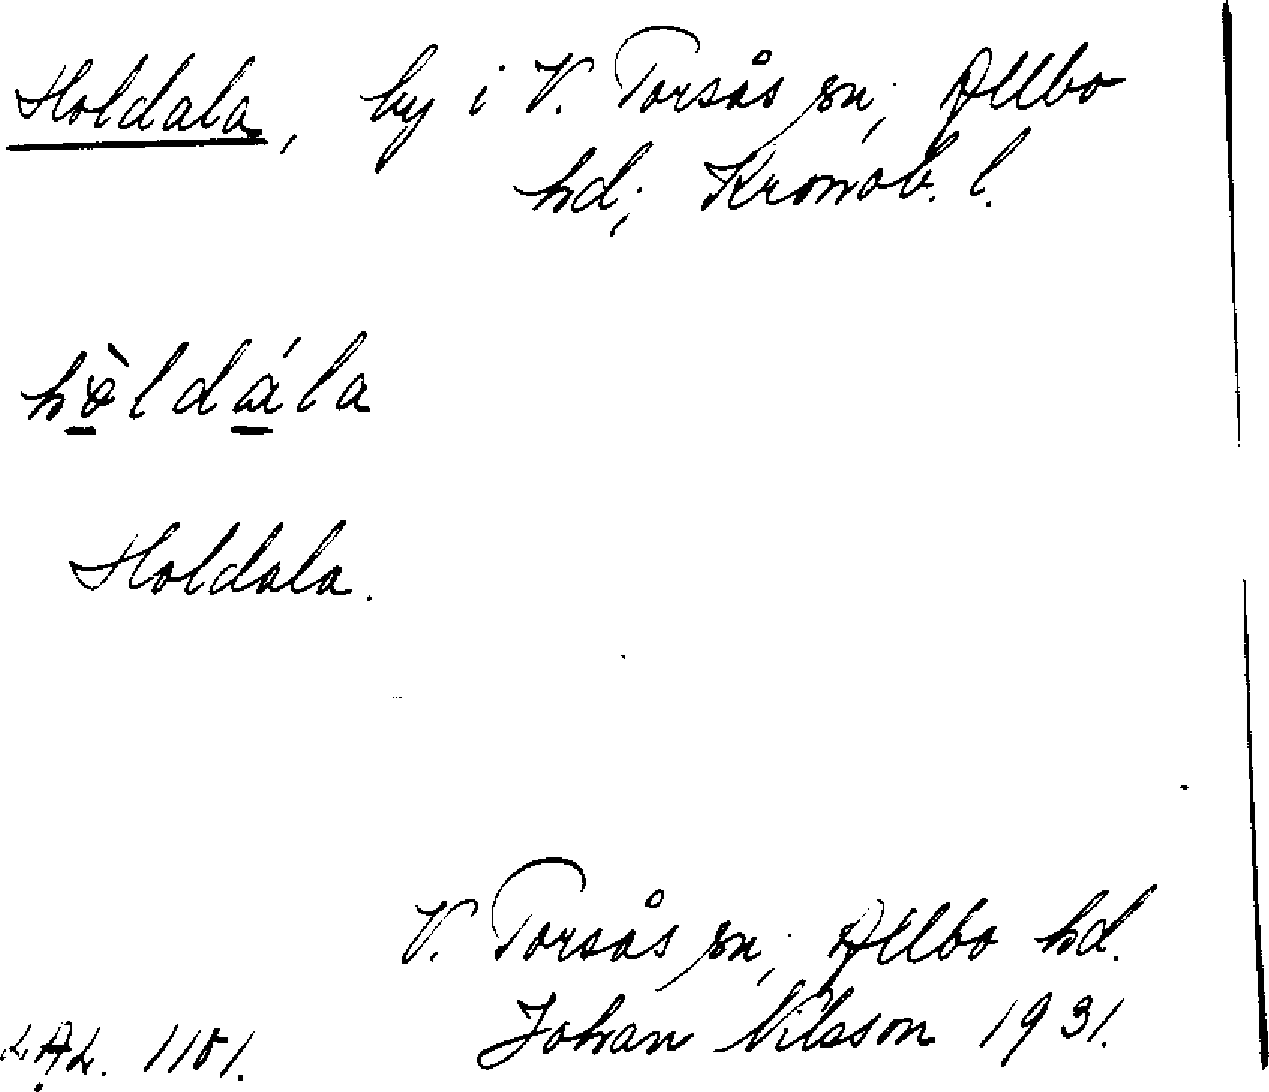 Holdala, by i V. Torsås sn; Allbo
hd; Kronob. l.
hòldála
Holdala.
V. Torsås sn; Allbo hd.
L.A.L. 1101. Johan Nilsson 1931.